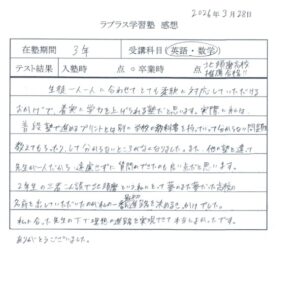 2026年3月28日
ラプラス学習塾 感想
在塾期間 3年 受講科目(英語・数学)
テスト結果 入塾時 点 ○ 卒業時 点 北須磨高校 推薦合格!!
生徒一人一人に合わせてとても柔軟に対応していただける
おかげで、着実に学力を上げられる塾だと思います。実際に私は、
普段塾で進めるプリントとは別に学校の教科書を持っていって分からない問題を
教えてもらったりして分からないところがなくなりました。また、他の塾と違って
先生が一人だから、遠慮せずに質問ができたのも良い点だと思います。
2年生の三者面談で北須磨という私にとって夢のまた夢だった高校の
名前を出していただいたのが私の一番進路を決めるきっかけでした。
私に合った先生の下で理想の進路を実現できて本当によかったです。
ありがとうございました。